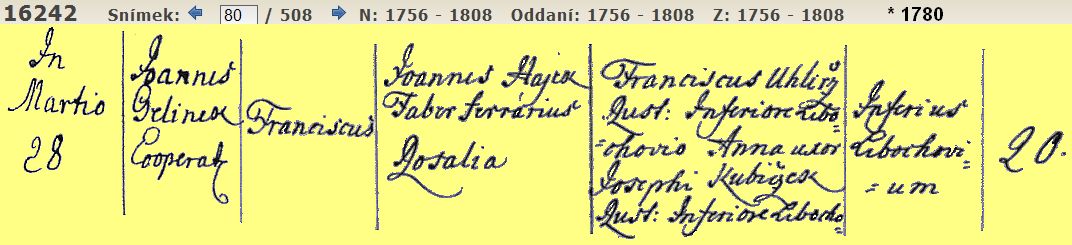 16242 Snímek: 80 / 508 N: 1756 - 1808 Oddaní: 1756 - 1808 Z: 1756 - 1808 * 1780
In
Martio
28
Joannes
Gelinek
Cooperat
Franciscus
Joannes Hajek
Faber ferrarius
Rosalia
Franciscus Uhlirz
Rust: Inferiore Libo=
=chovio Anna uxor
Josephi Kubiczek
Rust: Inferiore Libocho=
Inferius
Libochovi=
=um
20.